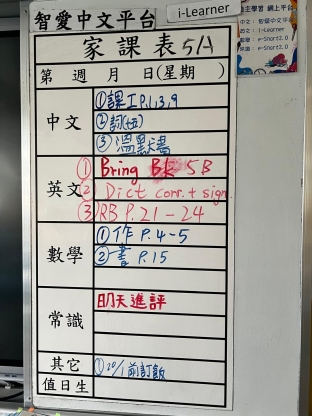 智愛中文平台
i-Learner
自主學習 網上平台
中文：智愛中文平台
英文：i-Learner
e-Smart2.0
e-Smart2.0
家課表 5A
第 週 月 日(星期 )
中文
①課工P.1,3,9
②詞(五)
③溫默書
英文
① Bring BK 5B
② Dict corr. + sign.
③ RB P.21-24
數學
①作 P.4-5
②書 P.15
常識
明天進評
其它
①20/1前訂飯
值日生